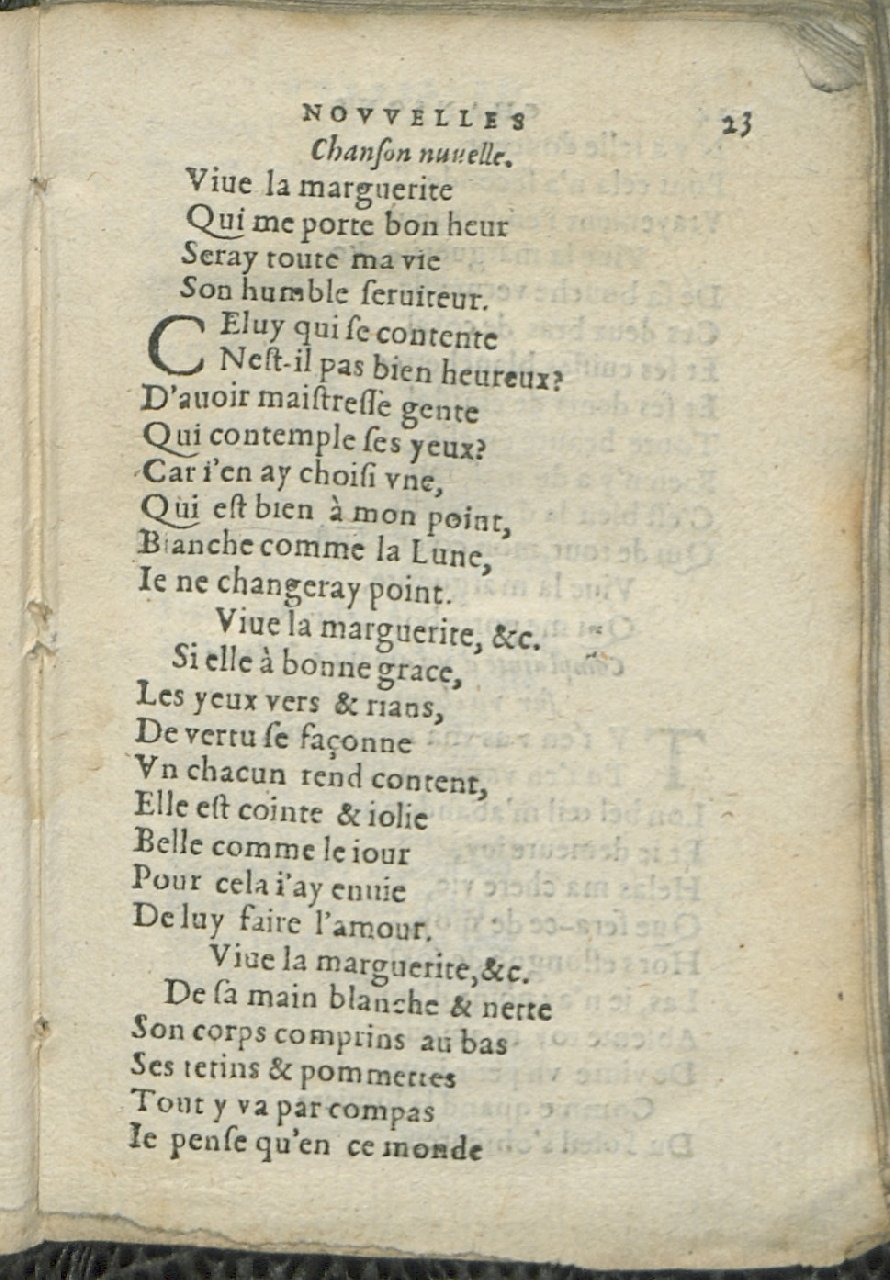 NOVVELLES 23
Chanſon nuuelle.
Viue la marguerite
Qui me porte bon heur
Seray toute ma vie
Son humble ſeruiteur.
CEluy qui ſe contente
Neſt-il pas bien heureux?
D'auoir maiſtreſſe gente
Qui contemple ſes yeux?
Car i'en ay choiſi vne,
Qui eſt bien à mon point,
Blanche comme la Lune,
Ie ne changeray point.
Viue la marguerite, &c.
Si elle à bonne grace,
Les yeux vers & rians,
De vertu ſe façonne
Vn chacun rend content,
Elle eſt cointe & iolie
Belle comme le iour
Pour cela i'ay enuie
De luy faire l'amour.
Viue la marguerite,&c.
De ſa main blanche & nette
Son corps comprins au bas
Ses tetins & pommettes
Tout y va par compas
Ie penſe qu'en ce monde